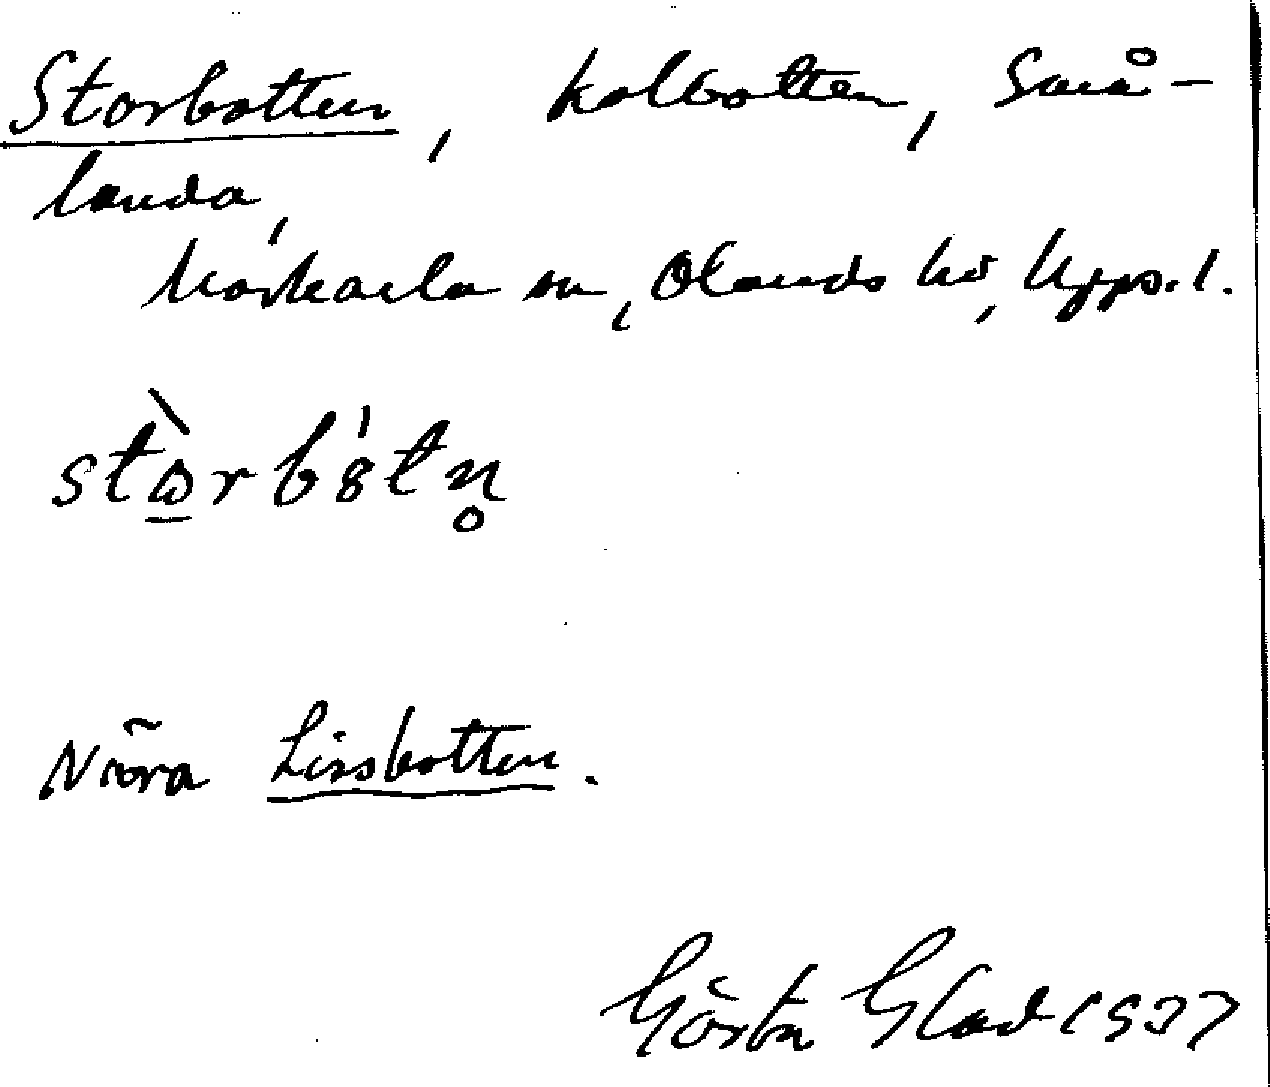 Storbotten, kolbotten, Små-
landa,
Morkarla sn, Olands hd, Upps. l.
stὼrbၖtn̥
Nära Lissbotten.
Gösta Glad 1937